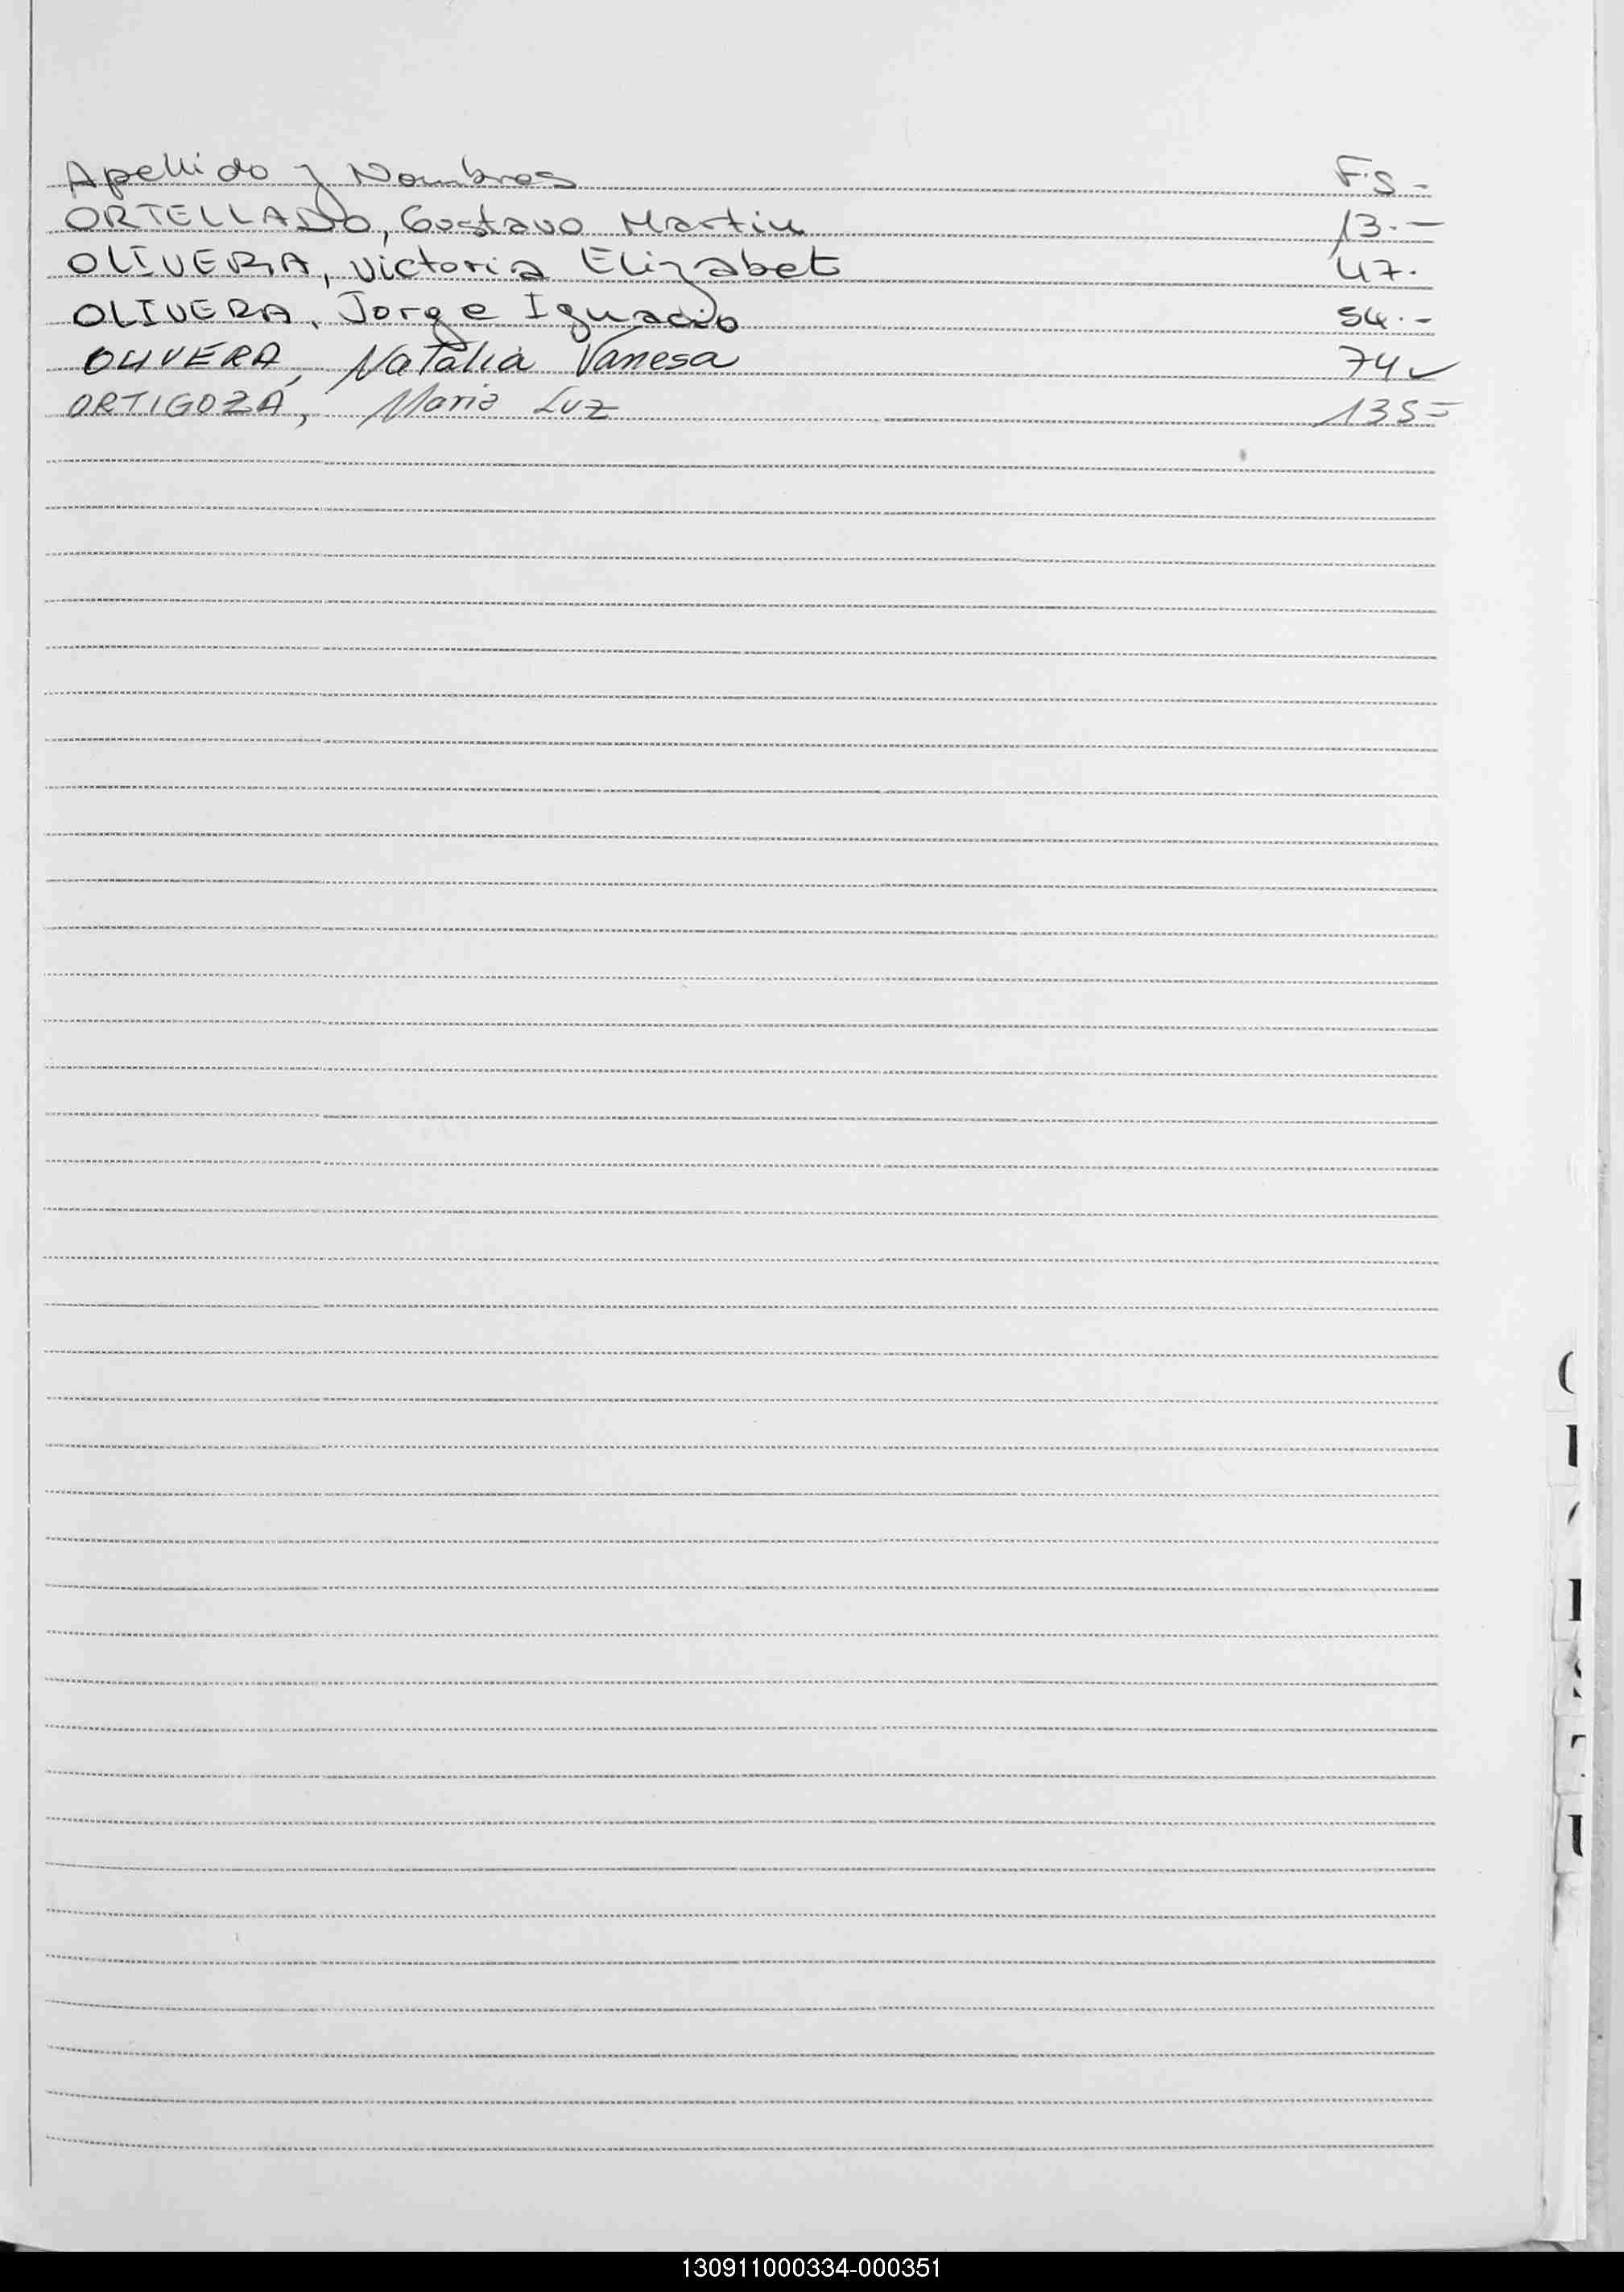 Apellido y Nombres F.S-
ORTELLADO, Gustavo Martin 13.-
OLIVERA, Victoria Elizabet 47.
OLIVERA, Jorge Ignacio 54.-
OLIVERA, Natalia Vanesa 74
ORTIGOZA, Maria Luz 135=
130911000334-000351